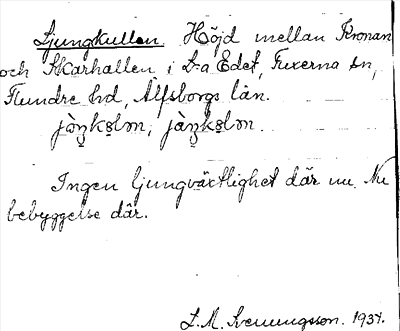 Ljungkullen. Höjd mellan Kronan
och Skarhallen i L:a Edet, Fuxerna sn,
Flundre hd, Älfsborgs län.
Ingen ljungväxtlighet där nu. Nu
bebyggelse där.
L. M. Svenungsson. 1937.